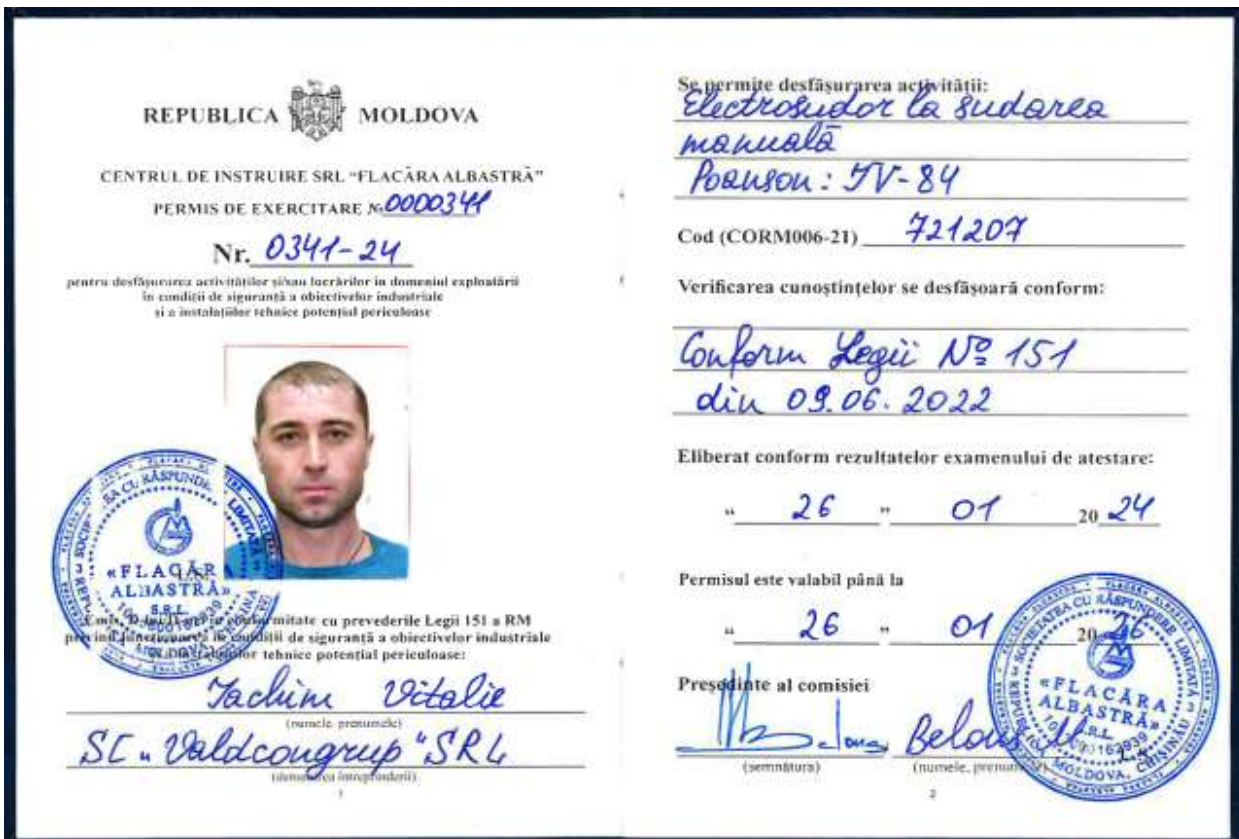 REPUBLICA MOLDOVA
CENTRUL DE INSTRUIRE SRL "FLACĂRA ALBASTRĂ"
PERMIS DE EXERCITARE № 0000341
Nr. 0341-24
pentru desfășurarea activităților și/sau lucrărilor în domeniul exploatării
în condiții de siguranță a obiectivelor industriale
și a instalațiilor tehnice potențial periculoase
«FLACĂRA
ALBASTRĂ»
S.R.L.
conformitate cu prevederile Legii 151 a RM
privind funcționarea în condiții de siguranță a obiectivelor industriale
tehnice potențial periculoase:
Iachim Vitalie
(numele, prenumele)
SC "Valdcongrup" SRL
(denumirea întreprinderii)
1
Se permite desfășurarea activității:
Electrosudor la sudarea
manuală
Poanson: IV-84
Cod (CORM006-21) 721207
Verificarea cunoștințelor se desfășoară conform:
Conform Legii № 151
din 09.06.2022
Eliberat conform rezultatelor examenului de atestare:
" 26 " 01 20 24
Permisul este valabil până la
" 26 " 01 20 26
Președinte al comisiei
Belous
(semnătura) (numele, prenumele)
SOCIETATEA CU RĂSPUNDERE LIMITATĂ
«FLACĂRA
ALBASTRĂ»
S.R.L.
MOLDOVA, CHIȘINĂU
2